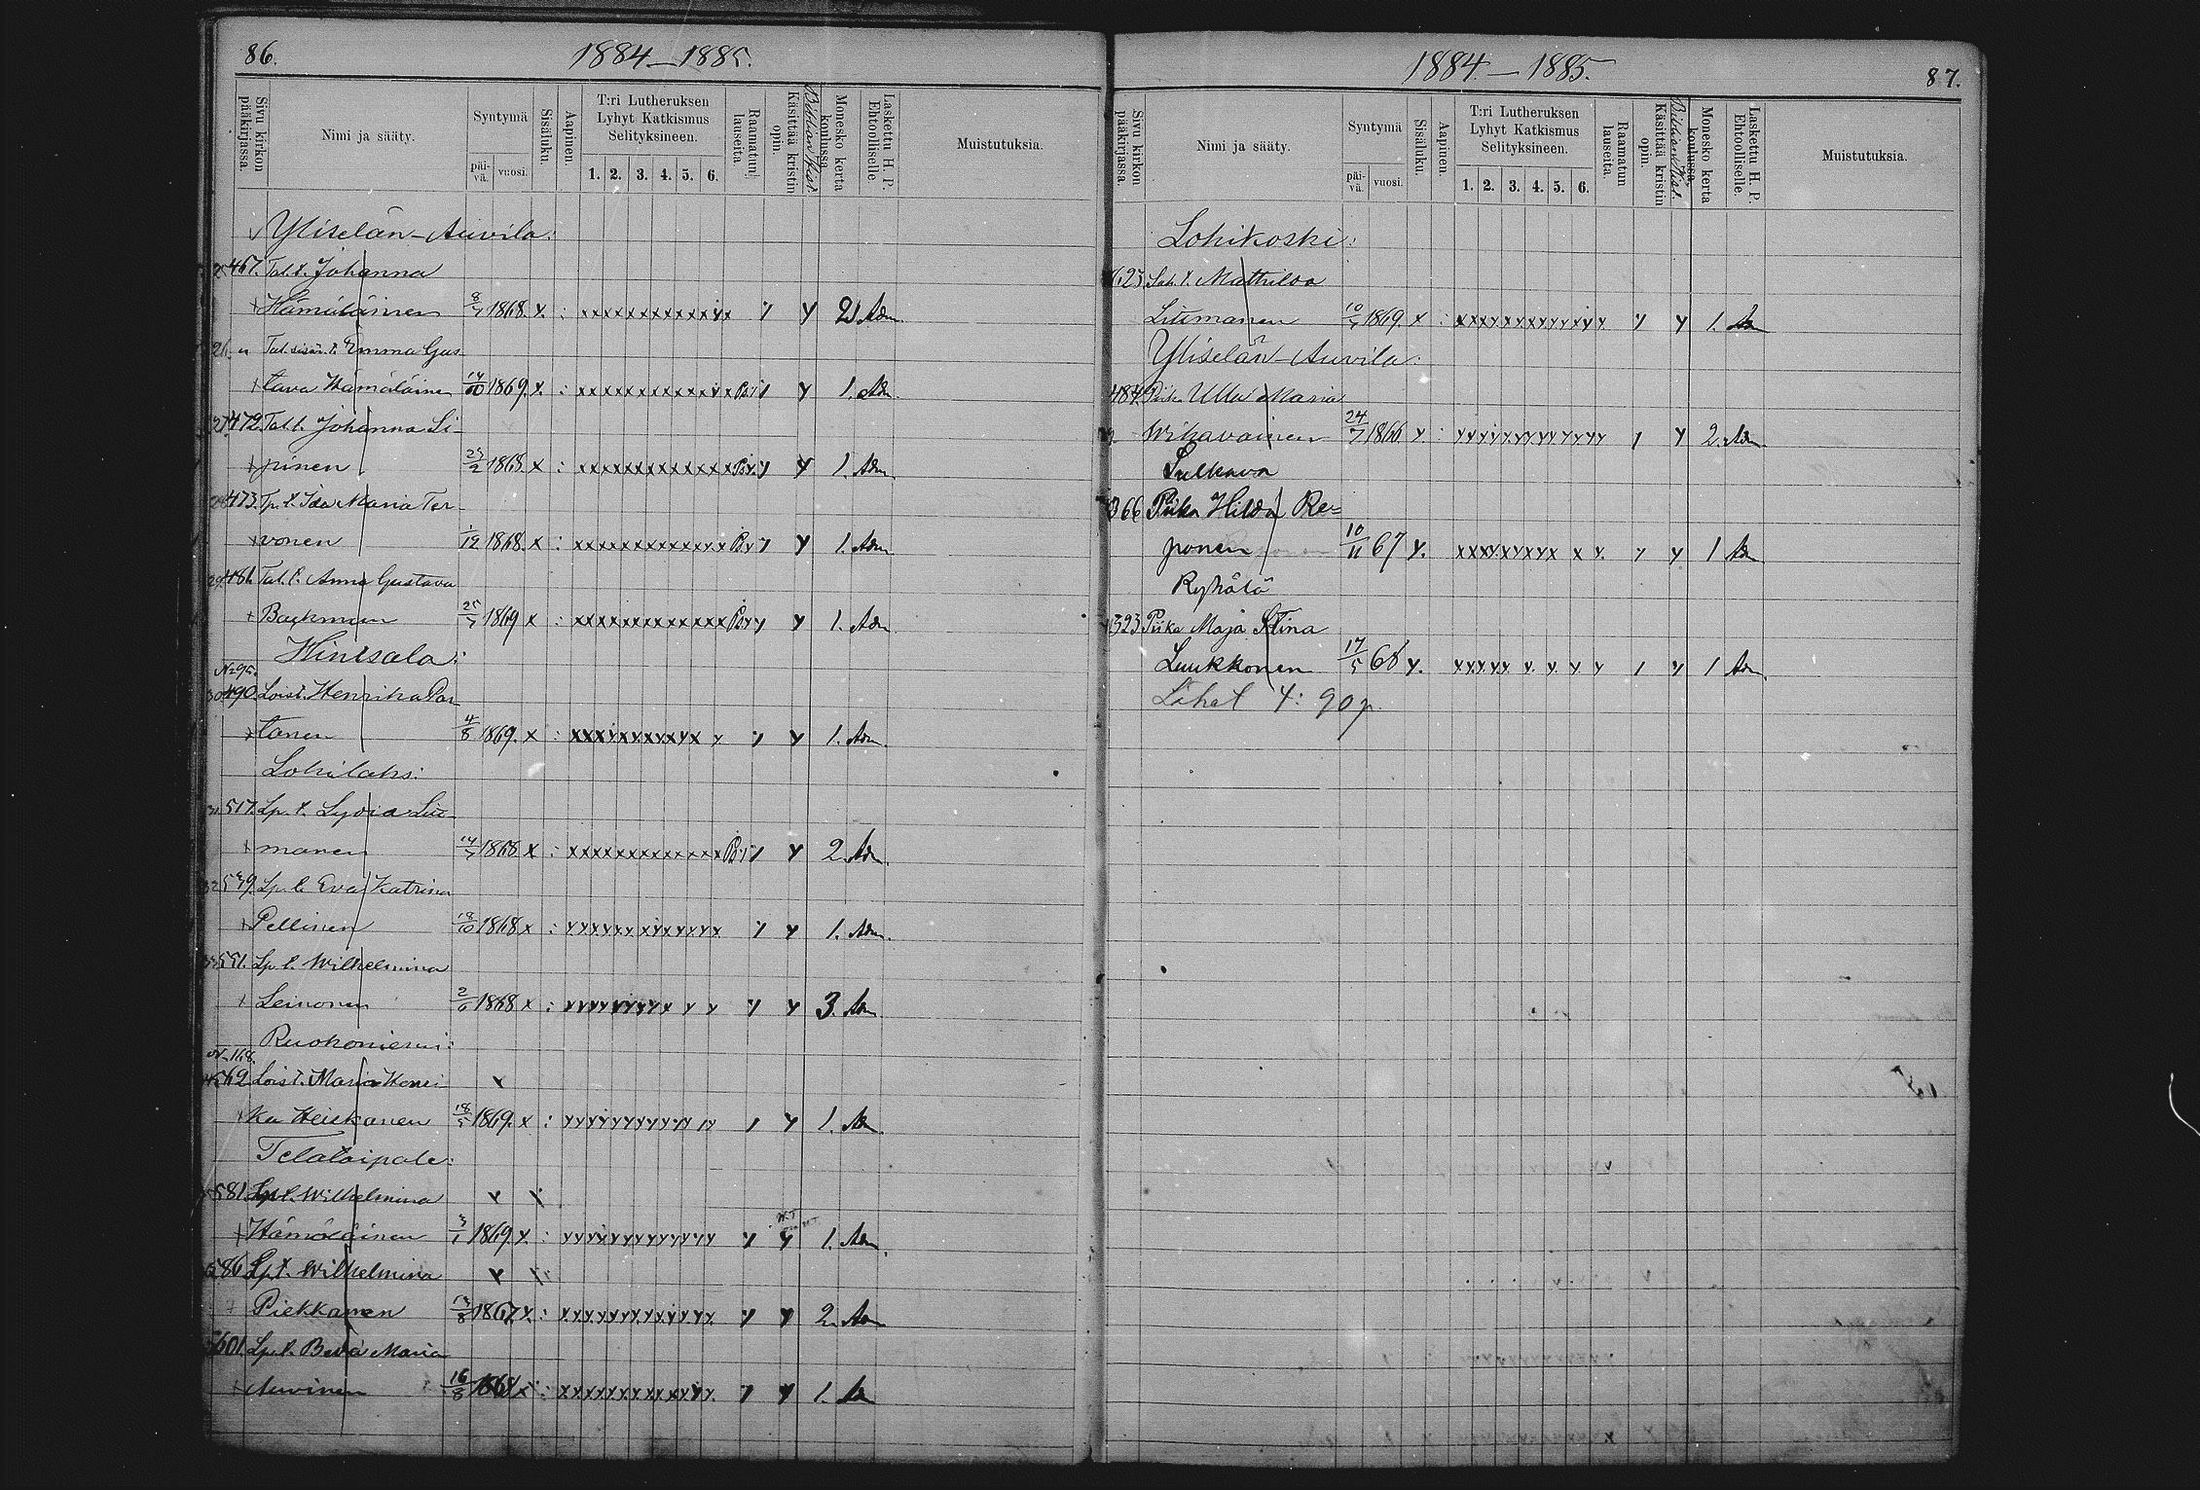 86.
1884–1885.
Sivu kirkon pääkirjassa.
Nimi ja sääty.
Syntymä
päi-vä.
vuosi.
Sisäluku.
Aapinen.
T:ri Lutheruksen
Lyhyt Katkismus
Selityksineen.
1. 2. 3. 4. 5. 6.
Raamatun lauseita.
Käsittää kristin opin.
Biblian Hist.
Monesko kerta koulussa.
Laskettu H. P. Ehtoolliselle.
Muistutuksia.
Yliselän-Auvila:
467. Tal. t. Johanna
Hämäläinen 8/7 1868. x. : xxxxxxxxxxxx y y 2 Adm.
26. " Tal. sisar. t. Emma Gus-
tava Hämäläinen 14/10 1869. x. : xxxxxxxxxxxx y 1. Adm.
27. 472. Tal. t. Johanna Li-
pinen 23/2 1868. x : xxxxxxxxxxxx y 1. Adm.
28. 473. Tp. t. Ida Maria Ter-
vonen 1/12 1868. x : xxxxxxxxxxxx y 1. Adm
29. 481. Tal. t. Anna Gustava
Backman 25/7 1869 x : xxxxxxxxxxxx y 1. Adm.
Hintsala:
N:o 95.
30. 490. Loist. Henrika Par-
tanen 4/8 1869. x : xxxxxxxxxxxx y y 1. Adm.
Lohilahs:
517. Lp. t. Lydia Lii-
manen 14/7 1868 x : xxxxxxxxxxxx y 2. Adm.
32 539. Lp. t. Eva Katrina
Pellinen 18/10 1868 x : yyxxxxyxyxyyyx y y 1. Adm.
551. Lp t. Wilhelmina
Leinonen 2/6 1868 x : yyyyyyyyyx y y y y 3. Adm
Ruokoniemi:
N. 168.
569 Loist. Maria Henri- x
ka Heiskanen 18/5 1869. x : yyyyyyyyyyyy y y 1. Adm
Telataipale:
581. Lp t. Wilhelmina x x
Hämäläinen 3/1 1869 x. : yyyyyyyyyyyy y y 1. Adm.
586 Lp t. Wilhelmina x
Piekkanen 13/8 1867 x. : xxxxyyyxyxyyx y y 2. Adm
601. Lp. t. Beda Maria
Auvinen 16/8 1868 x : xxyyyyyxxxxyyy. y y 1. Adm
87.
1884–1885.
Sivu kirkon pääkirjassa.
Nimi ja sääty.
Syntymä
päi-vä.
vuosi.
Sisäluku.
Aapinen.
T:ri Lutheruksen
Lyhyt Katkismus
Selityksineen.
1. 2. 3. 4. 5. 6.
Raamatun lauseita.
Käsittää kristin opin.
Biblian Hist.
Monesko kerta koulussa.
Laskettu H. P. Ehtoolliselle.
Muistutuksia.
Lohikoski:
623 t. Mathilda
Liimanen 10/5 1869. x : xxxyxyxyyyxyy y y 1. Adm
Yliselän-Auvila:
484. Piika Ulla Maria
Wihavainen 24/7 1866 y : yyyyyyyyyyyyy y y 2. Adm.
Sulkava
366 Piika Hilda Re=
ponen 10/11 67 y. xxxyxyxyx x y. y y 1 Adm
Ryhälä
323 Piika Maja Stina
Luukkonen 17/5 68 y. xyxyx y. y. y y y y 1 Adm.
Lähet 4: 90 p.